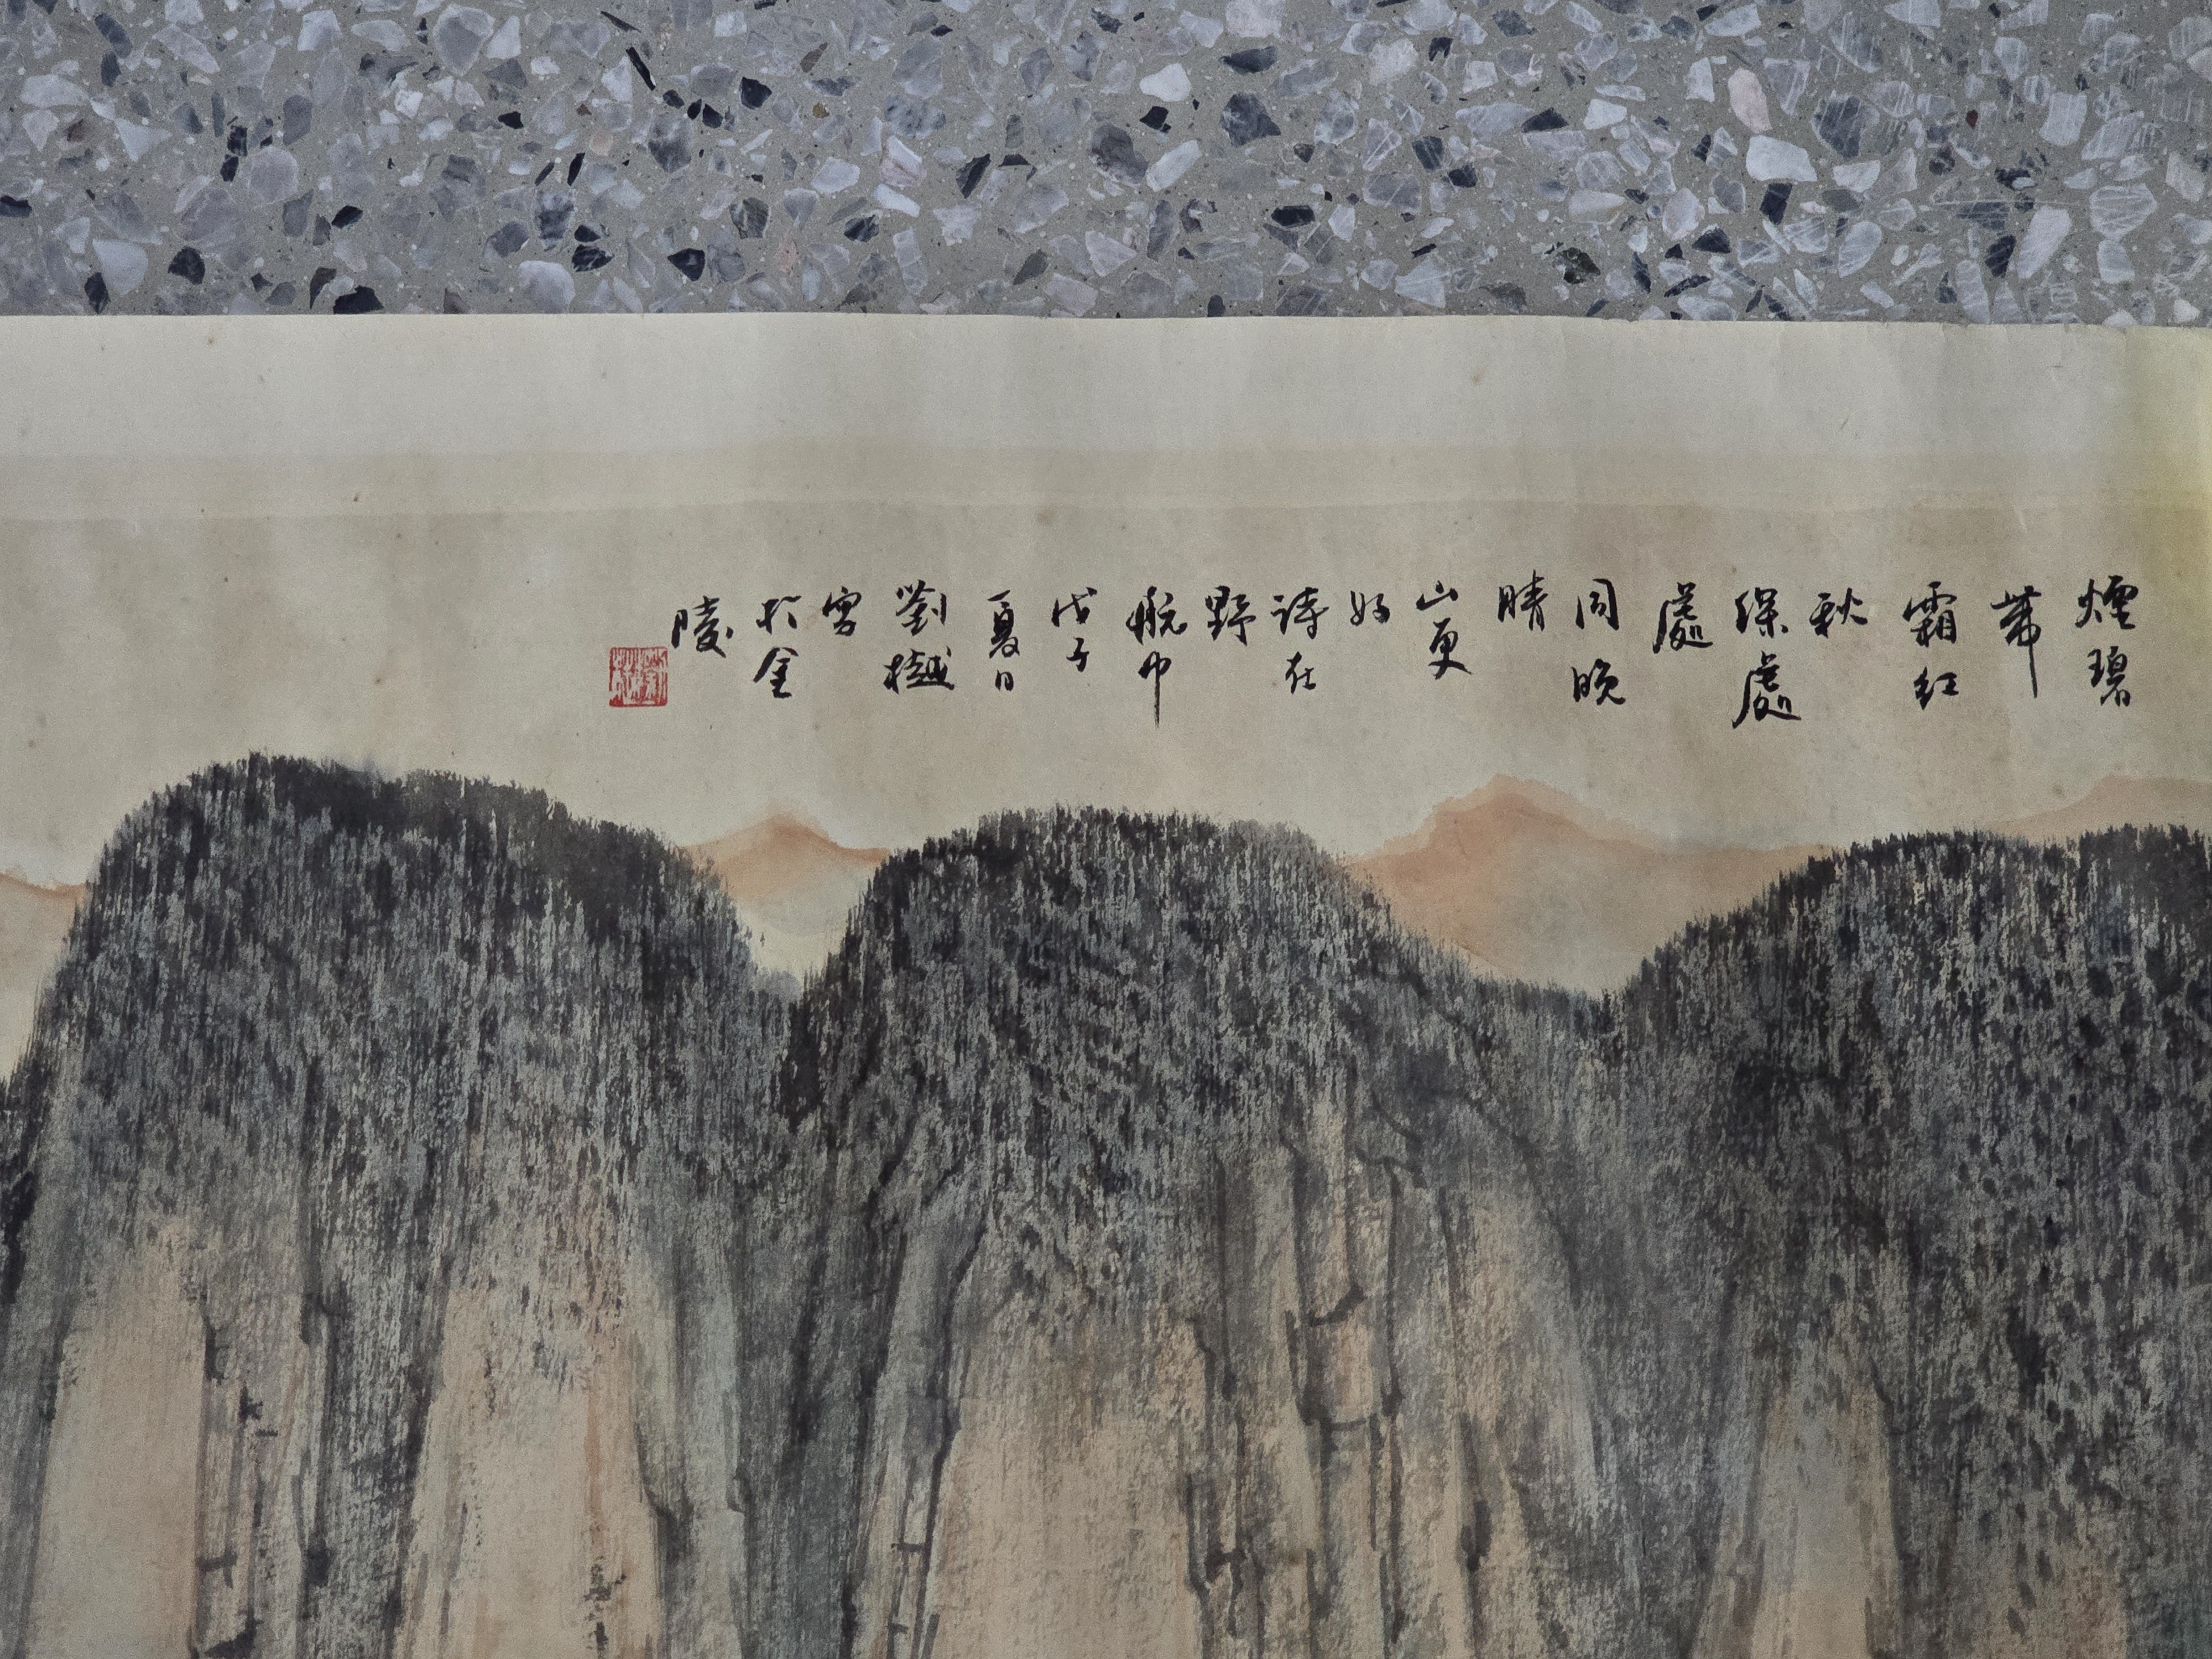 煙碧
帶
霜紅
秋
深處
處
同晚
晴
山更
好
詩在
野
航中
戊子
夏日
劉樾
寫
於金
陵